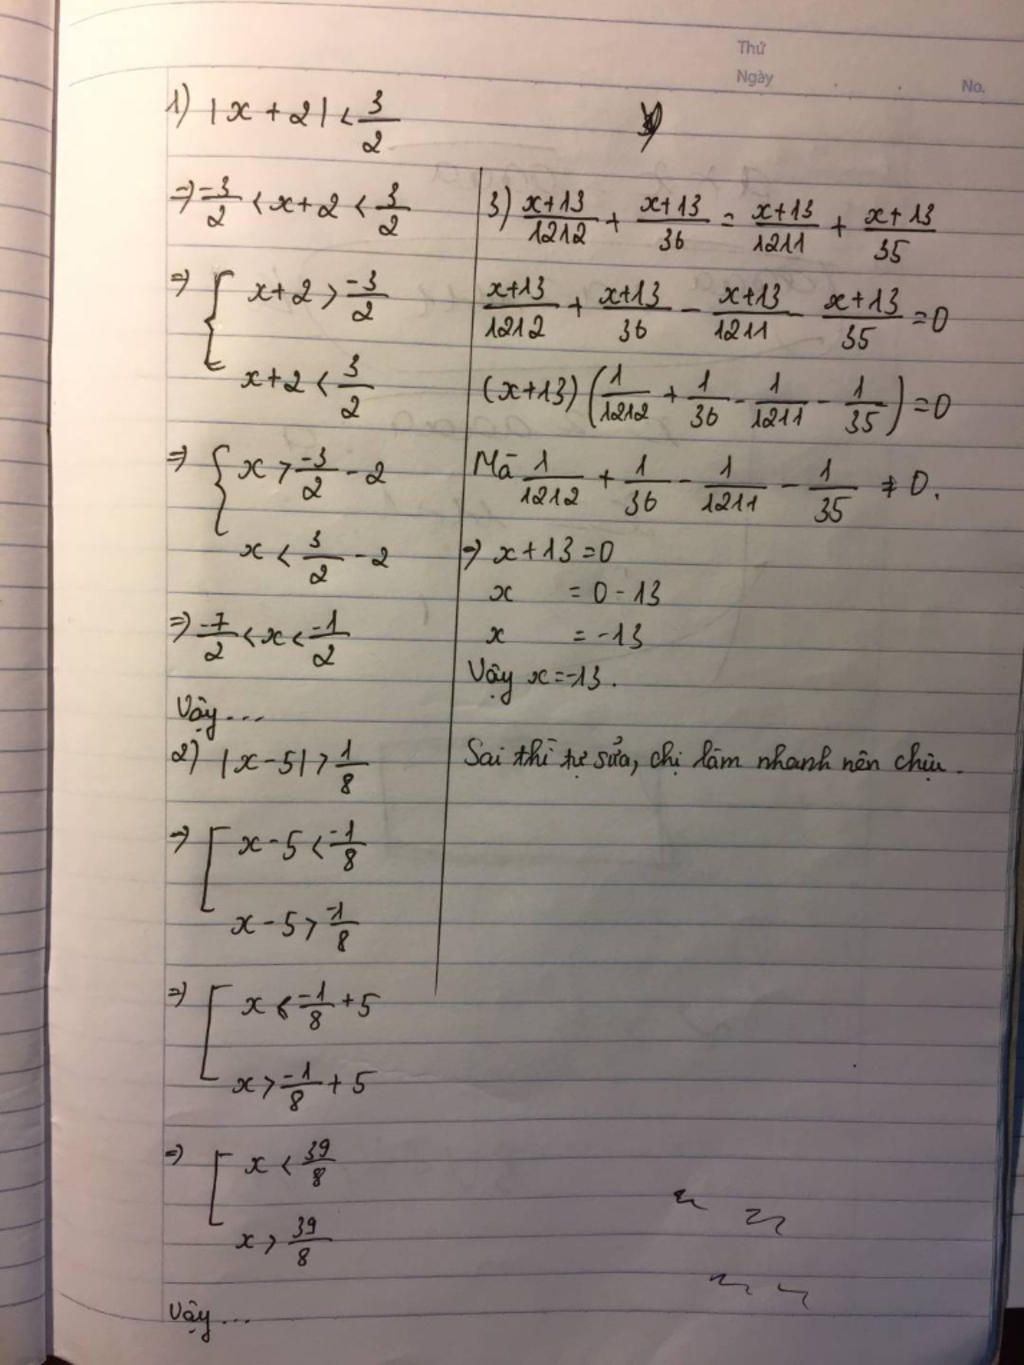 Thứ
Ngày . . . No.
1) |x + 2| < 3/2
=> -3/2 < x+2 < 3/2
=> { x+2 > -3/2
x+2 < 3/2
=> { x > -3/2 - 2
x < 3/2 - 2
=> -7/2 < x < -1/2
Vậy ...
2) |x-5| > 1/8
=> [ x-5 < -1/8
x-5 > -1/8
=> [ x < -1/8 + 5
x > -1/8 + 5
=> [ x < 39/8
x > 39/8
Vậy ...
3) x+13/1212 + x+13/36 = x+13/1211 + x+13/35
x+13/1212 + x+13/36 - x+13/1211 - x+13/35 = 0
(x+13) (1/1212 + 1/36 - 1/1211 - 1/35) = 0
Mà 1/1212 + 1/36 - 1/1211 - 1/35 ≠ 0.
=> x+13 = 0
x = 0 - 13
x = -13
Vậy x = -13.
Sai thì tự sửa, chị làm nhanh nên chịu.